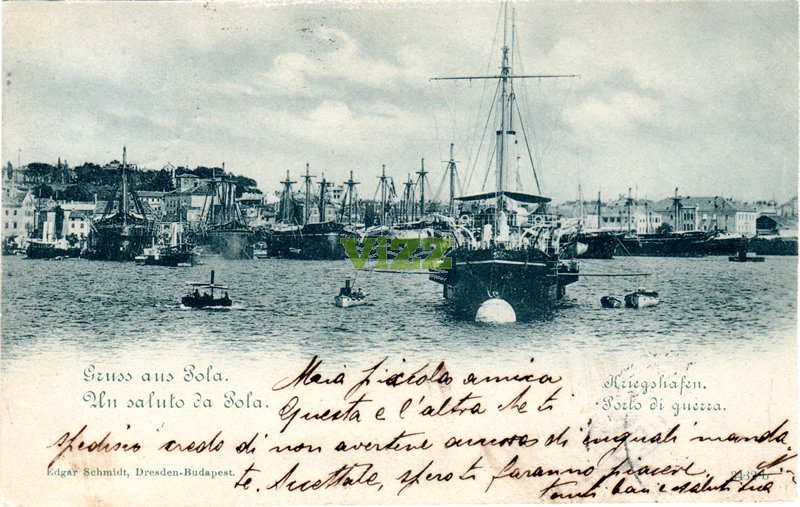 vizz
Gruss aus Pola.
Un saluto da Pola.
Kriegshafen.
Porto di guerra.
Mia piccola amica
Questa e l'altra che ti
spedisco credo di non avertene ancora di uguali manda
te. Accettale, spero ti faranno piacere,
tanti baci e saluti tua
Edgar Schmidt, Dresden-Budapest.